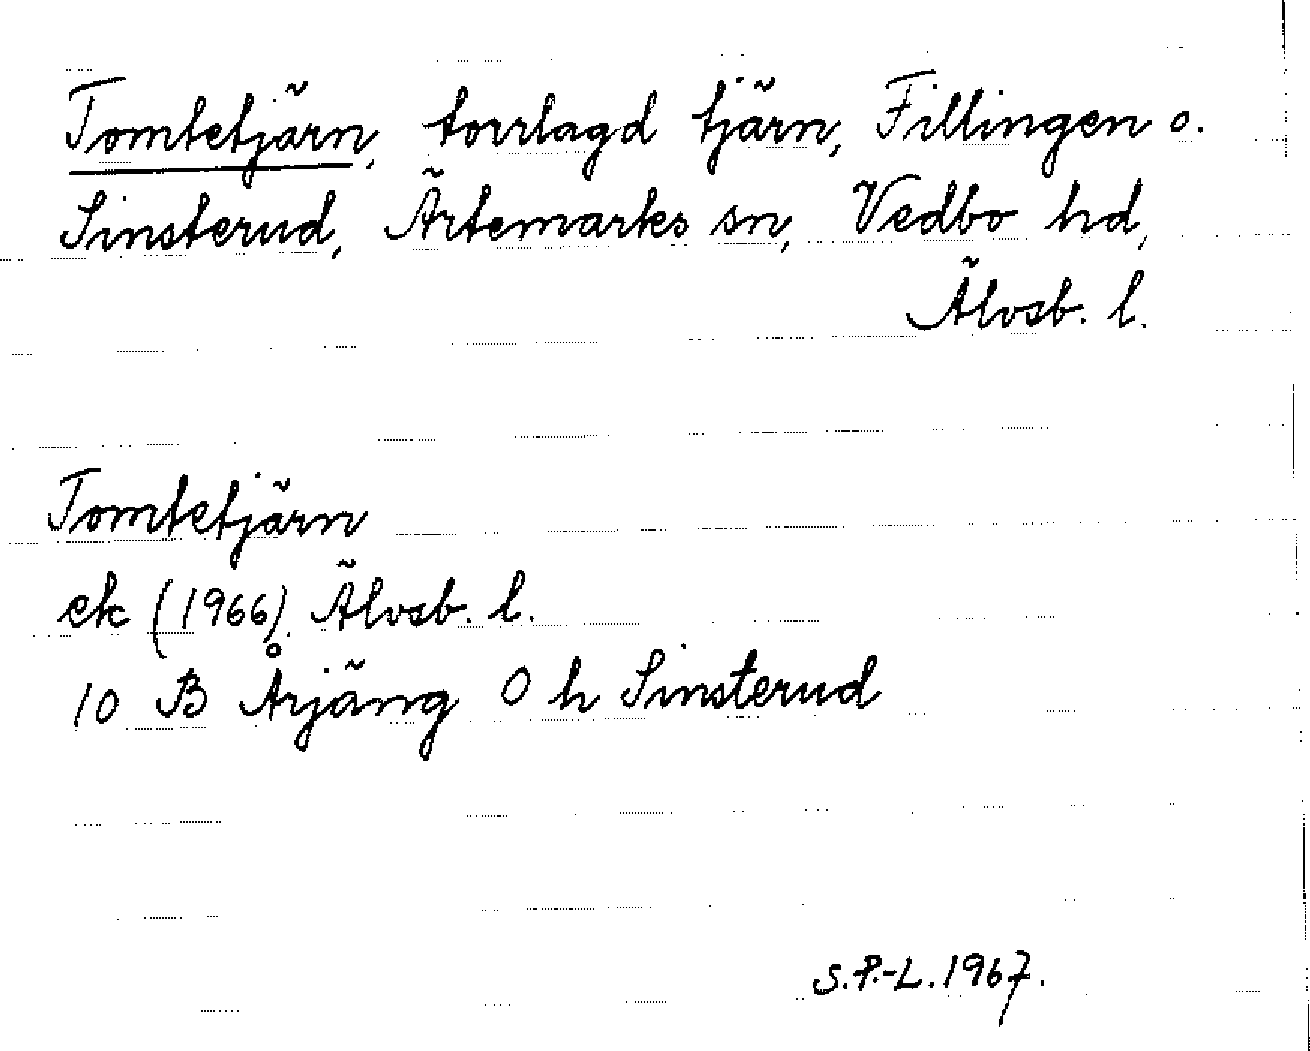 Tomtetjärn, torrlagd tjärn, Fillingen o.
Sinsterud, Ärtemarks sn, Vedbo hd,
Älvsb. l.
Tomtetjärn
ek (1966) Älvsb. l.
10 B Årjäng 0 h Sinsterud
S.P.-L. 1967.